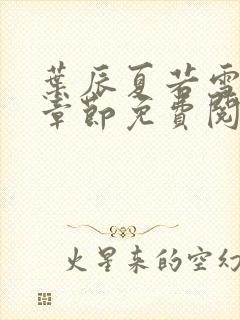 葉辰夏若雪
章節免費閱
火星來的空幻